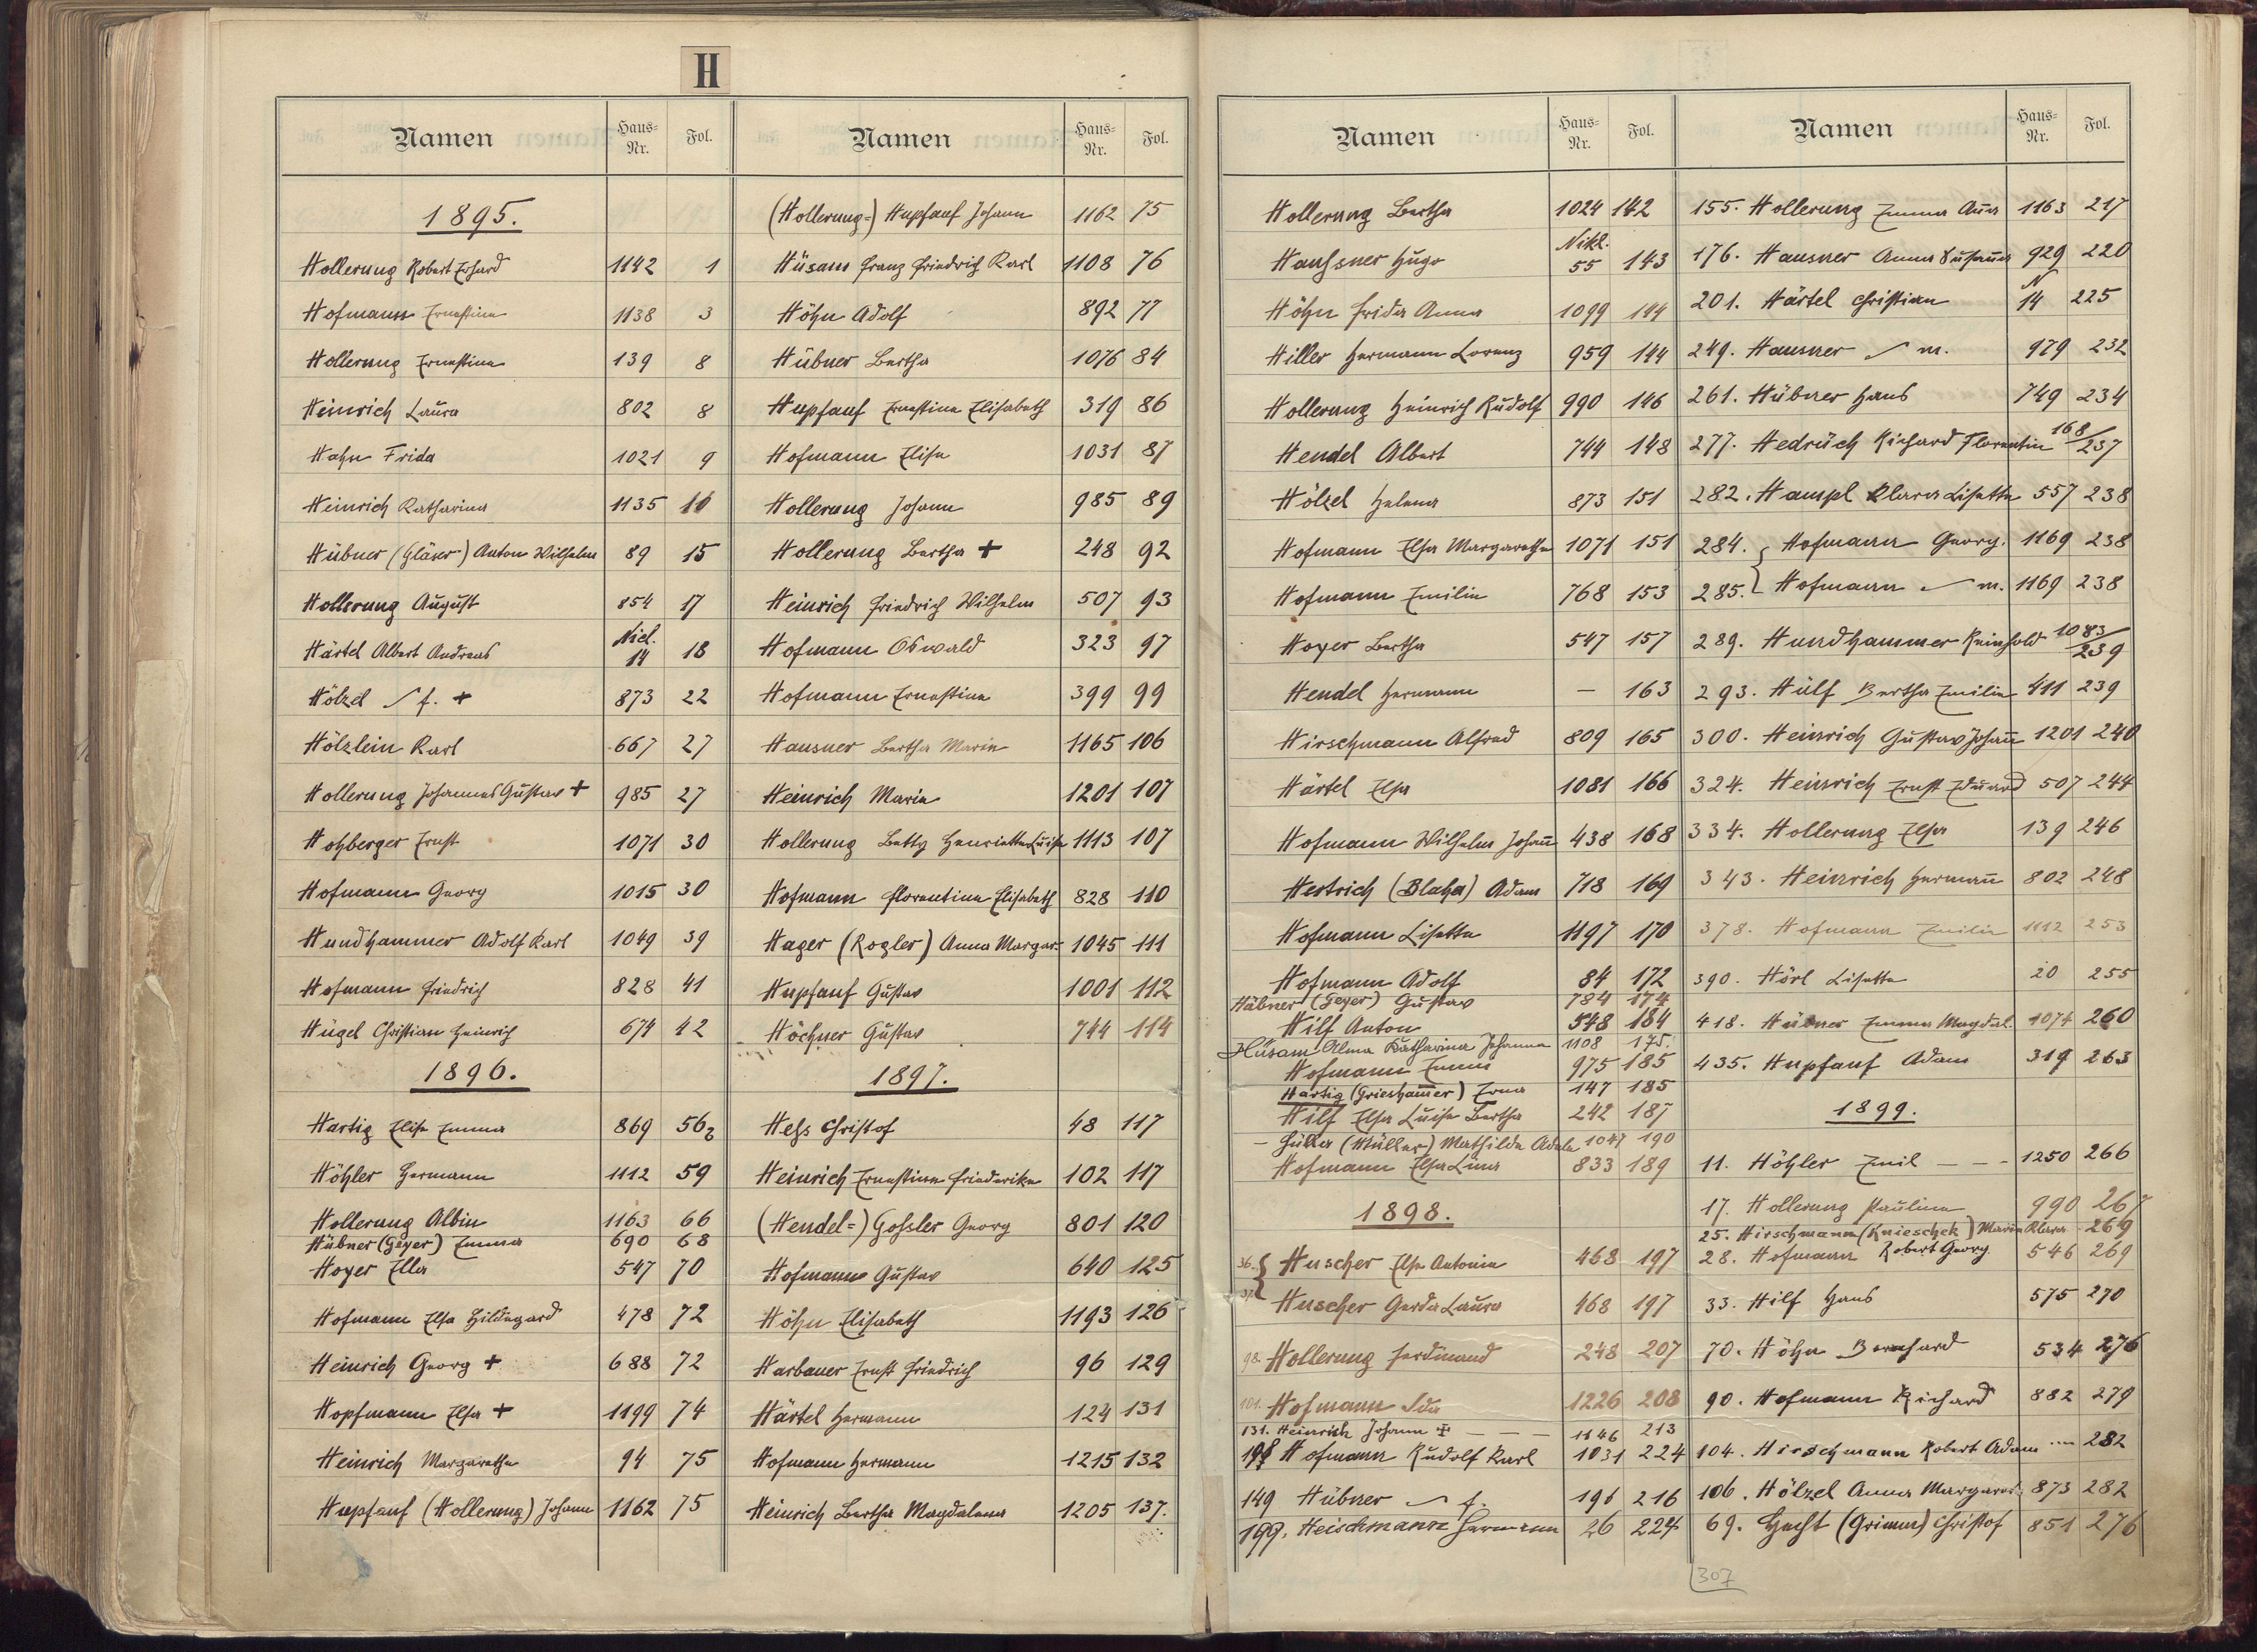 H
Namen Haus-Nr. Fol.
1895.
Hollerung Robert Erhard 1142 1
Hofmann Ernestine 1138 3
Hollerung Ernestine 139 8
Heinrich Laura 802 8
Hahn Frida 1021 9
Heinrich Katharina 1135 10
Hübner (Gläser) Anton Wilhelm 89 15
Hollerung August 854 17
Härtel Albert Andreas Nicl. 14 18
Hölzel f. + 873 22
Hölzlein Karl 667 27
Hollerung Johannes Gustav + 985 27
Hohberger Ernst 1071 30
Hofmann Georg 1015 30
Hundhammer Adolf Karl 1049 39
Hofmann Friedrich 828 41
Hügel Christian Heinrich 674 42
1896.
Hartig Elise Emma 869 56
Höhler Hermann 1112 59
Hollerung Albin 1163 66
Hübner (Geyer) Emma 690 68
Hoyer Ella 547 70
Hofmann Elsa Hildegard 478 72
Heinrich Georg + 688 72
Hopfmann Elsa + 1199 74
Heinrich Margaretha 94 75
Hupfauf (Hollerung) Johann 1162 75
Namen Haus-Nr. Fol.
(Hollerung=) Hupfauf Johann 1162 75
Hüsam Franz Friedrich Karl 1108 76
Höhn Adolf 892 77
Hübner Bertha 1076 84
Hupfauf Ernestine Elisabeth 319 86
Hofmann Elise 1031 87
Hollerung Johann 985 89
Hollerung Bertha + 248 92
Heinrich Friedrich Wilhelm 507 93
Hofmann Oswald 323 97
Hofmann Ernestine 399 99
Hausner Bertha Marie 1165 106
Heinrich Marie 1201 107
Hollerung Betty Henriette Luise 1113 107
Hofmann Florentine Elisabeth 828 110
Hager (Rogler) Anna Margar. 1045 111
Hupfauf Gustav 1001 112
Höchner Gustav 744 114
1897.
Heß Christof 48 117
Heinrich Ernestine Friederike 102 117
(Hendel=) Goßler Georg 801 120
Hofmann Gustav 640 125
Höhn Elisabeth 1193 126
Harbauer Ernst Friedrich 96 129
Härtel Hermann 124 131
Hofmann Hermann 1215 132
Heinrich Bertha Magdalena 1205 137.
Namen Haus-Nr. Fol.
Hollerung Bertha 1024 142
Haußner Hugo Nikl. 55 143
Höhn Frida Anna 1099 144
Hiller Hermann Lorenz 959 144
Hollerung Heinrich Rudolf 990 146
Hendel Albert 744 148
Hölzel Helena 873 151
Hofmann Elsa Margaretha 1071 151
Hofmann Emilie 768 153
Hoyer Bertha 547 157
Hendel Hermann — 163
Hirschmann Alfred 809 165
Härtel Elsa 1081 166
Hofmann Wilhelm Johañ 438 168
Hertrich (Blaha) Adam 718 169
Hofmann Lisette 1197 170
Hofmann Adolf 84 172
Hübner (Geyer) Gustav 784 174
Hilf Anton 548 184
Hüsam Alma Katharina Johanna 1108 175.
Hofmann Emma 975 185
Hartig (Griesham̄er) Erna 147 185
Hilf Elsa Luise Bertha 242 187
— Hüller (Müller) Mathilde Adele 1047 190
Hofmann Elsa Lina 833 189
1898.
36. Huscher Elsa Antonie 468 197
37. Huscher Gerda Laura 468 197
98. Hollerung Ferdinand 248 207
101. Hofmann Ida 1226 208
131. Heinrich Johann ‡ — — — 1146 213
198 Hofmann Rudolf Karl 1031 224
149 Hübner f. 196 216
199. Heischmann Hermann 26 224
Namen Haus-Nr. Fol.
155. Hollerung Emma Aña 1163 217
176. Hausner Anna Susaña 929 220
201. Härtel Christian N 14 225
249. Hausner m. 979 232
261. Hübner Hans 749 234
277. Hedrüch Richard Florentin 168/237
282. Hampl Klara Lisette 557 238
284. Hofmann Georg. 1169 238
285. Hofmann m. 1169 238
289. Hundhammer Reinhold 1083/239
293. Hülf Bertha Emilie 411 239
300. Heinrich Gustav Johañ 1201 240
324. Heinrich Ernst Eduard 507 244
334. Hollerung Elsa 139 246
343. Heinrich Hermañ 802 248
378. Hofmann Emilie 1112 253
390. Hörl Lisette 20 255
418. Hübner Emma Magdal. 1074 260
435. Hupfauf Adam 319 263
1899.
11. Höhler Emil — — — 1250 266
17. Hollerung Pauline 990 267
25. Hirschmann (Knieschek) Marie Klara 269
28. Hofmann Robert Georg 546 269
33. Hilf Hans 575 270
70. Höhn Bernhard 534 276
90. Hofmann Richard 882 279
104. Hirschmann Robert Adam 282
106. Hölzel Anna Margaret. 873 282
69. Hecht (Grimm) Christof 851 276
307